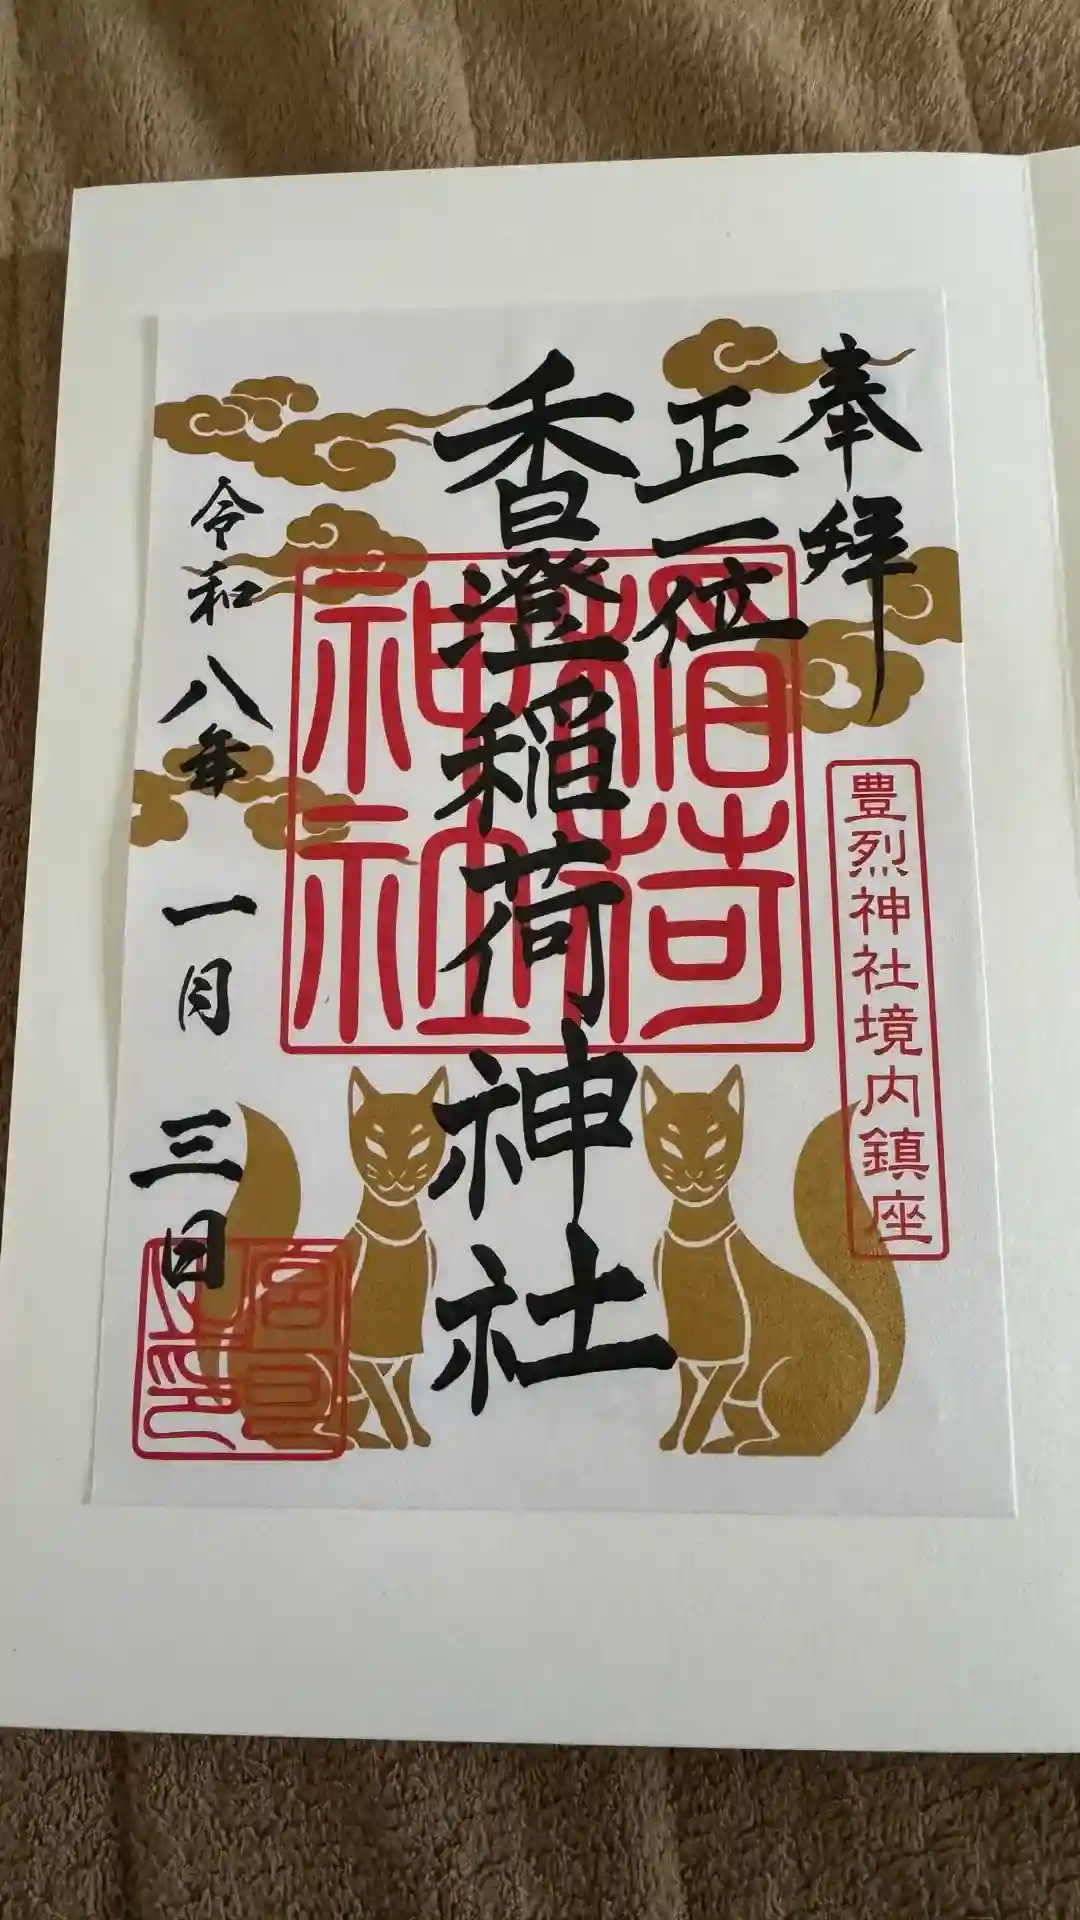 奉拝
正一位
香澄稲荷神社
豊烈神社境内鎮座
稲荷
神社
令和八年一月三日